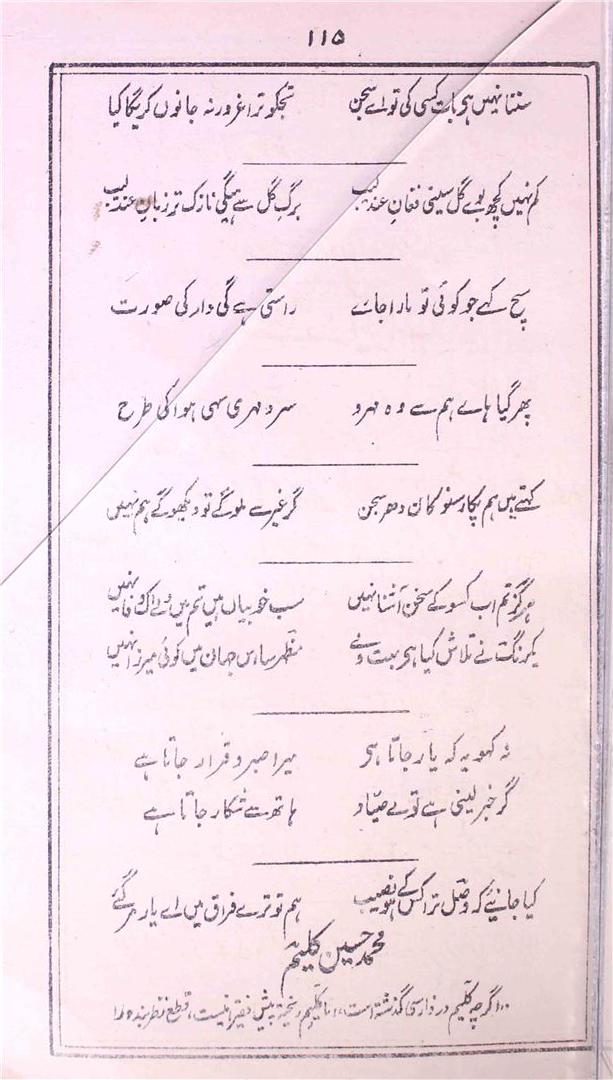 ۱۱۵
سنتا نہیں ہی بات کسی کی تو اے سجن تجکو ترا غرور نہ جانوں کریگا کیا
کم نہیں کچھ بوے گل سیتی فغانِ عندلیب برگِ گل سے ہیگی نازک تر زبانِ عندلیب
سچ کہے جو کوئی تو مارا جاے راستی ہے گی دار کی صورت
پھر گیا ہاے ہم سے وہ مہرو سرد مہری سہی ہوا کی طرح
کہتے ہیں ہم پکار سنو کان دھر سجن گر غیر سے ملوگے تو دیکھوگے ہم نہیں
ہرگز تم اب کسو کے سخن آشنا نہیں سب خوبیاں ہیں تم میں ولے اک وفا نہیں
یکرنگ نے تلاش کیا ہی بہت ولے مظہر سا اس جہان میں کوئی میرزا نہیں
نہ کہو یہ کہ یار جاتا ہی میرا صبر و قرار جاتا ہے
گر خبر لینی ہے تو لے صیّاد ہاتھ سے شکار جاتا ہے
کیا جانیئے کہ وصل ترا کس کے ہو نصیب ہم تو ترے فراق میں اے یار مر گئے
محمد حسین کلیم
اگرچہ کلیم در فارسی گذشتہ است، اما کلیم ریختہ پیش فقیر اینست، قطع نظر